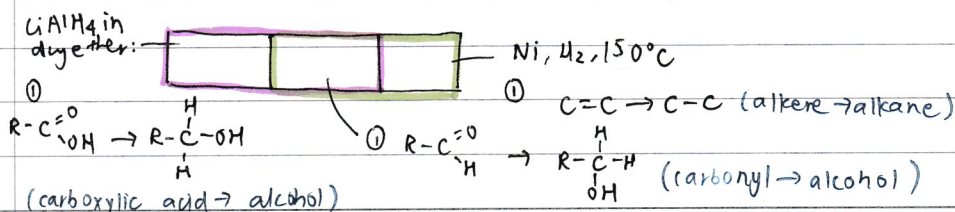 LiAlH4 in
dry ether:
Ni, H2, 150°C
①
R-C=O
OH → R-C-OH
H
H
(carboxylic acid → alcohol)
① R-C=O
H → R-C-H
H
OH
(carbonyl → alcohol)
①
C=C → C-C (alkene → alkane)